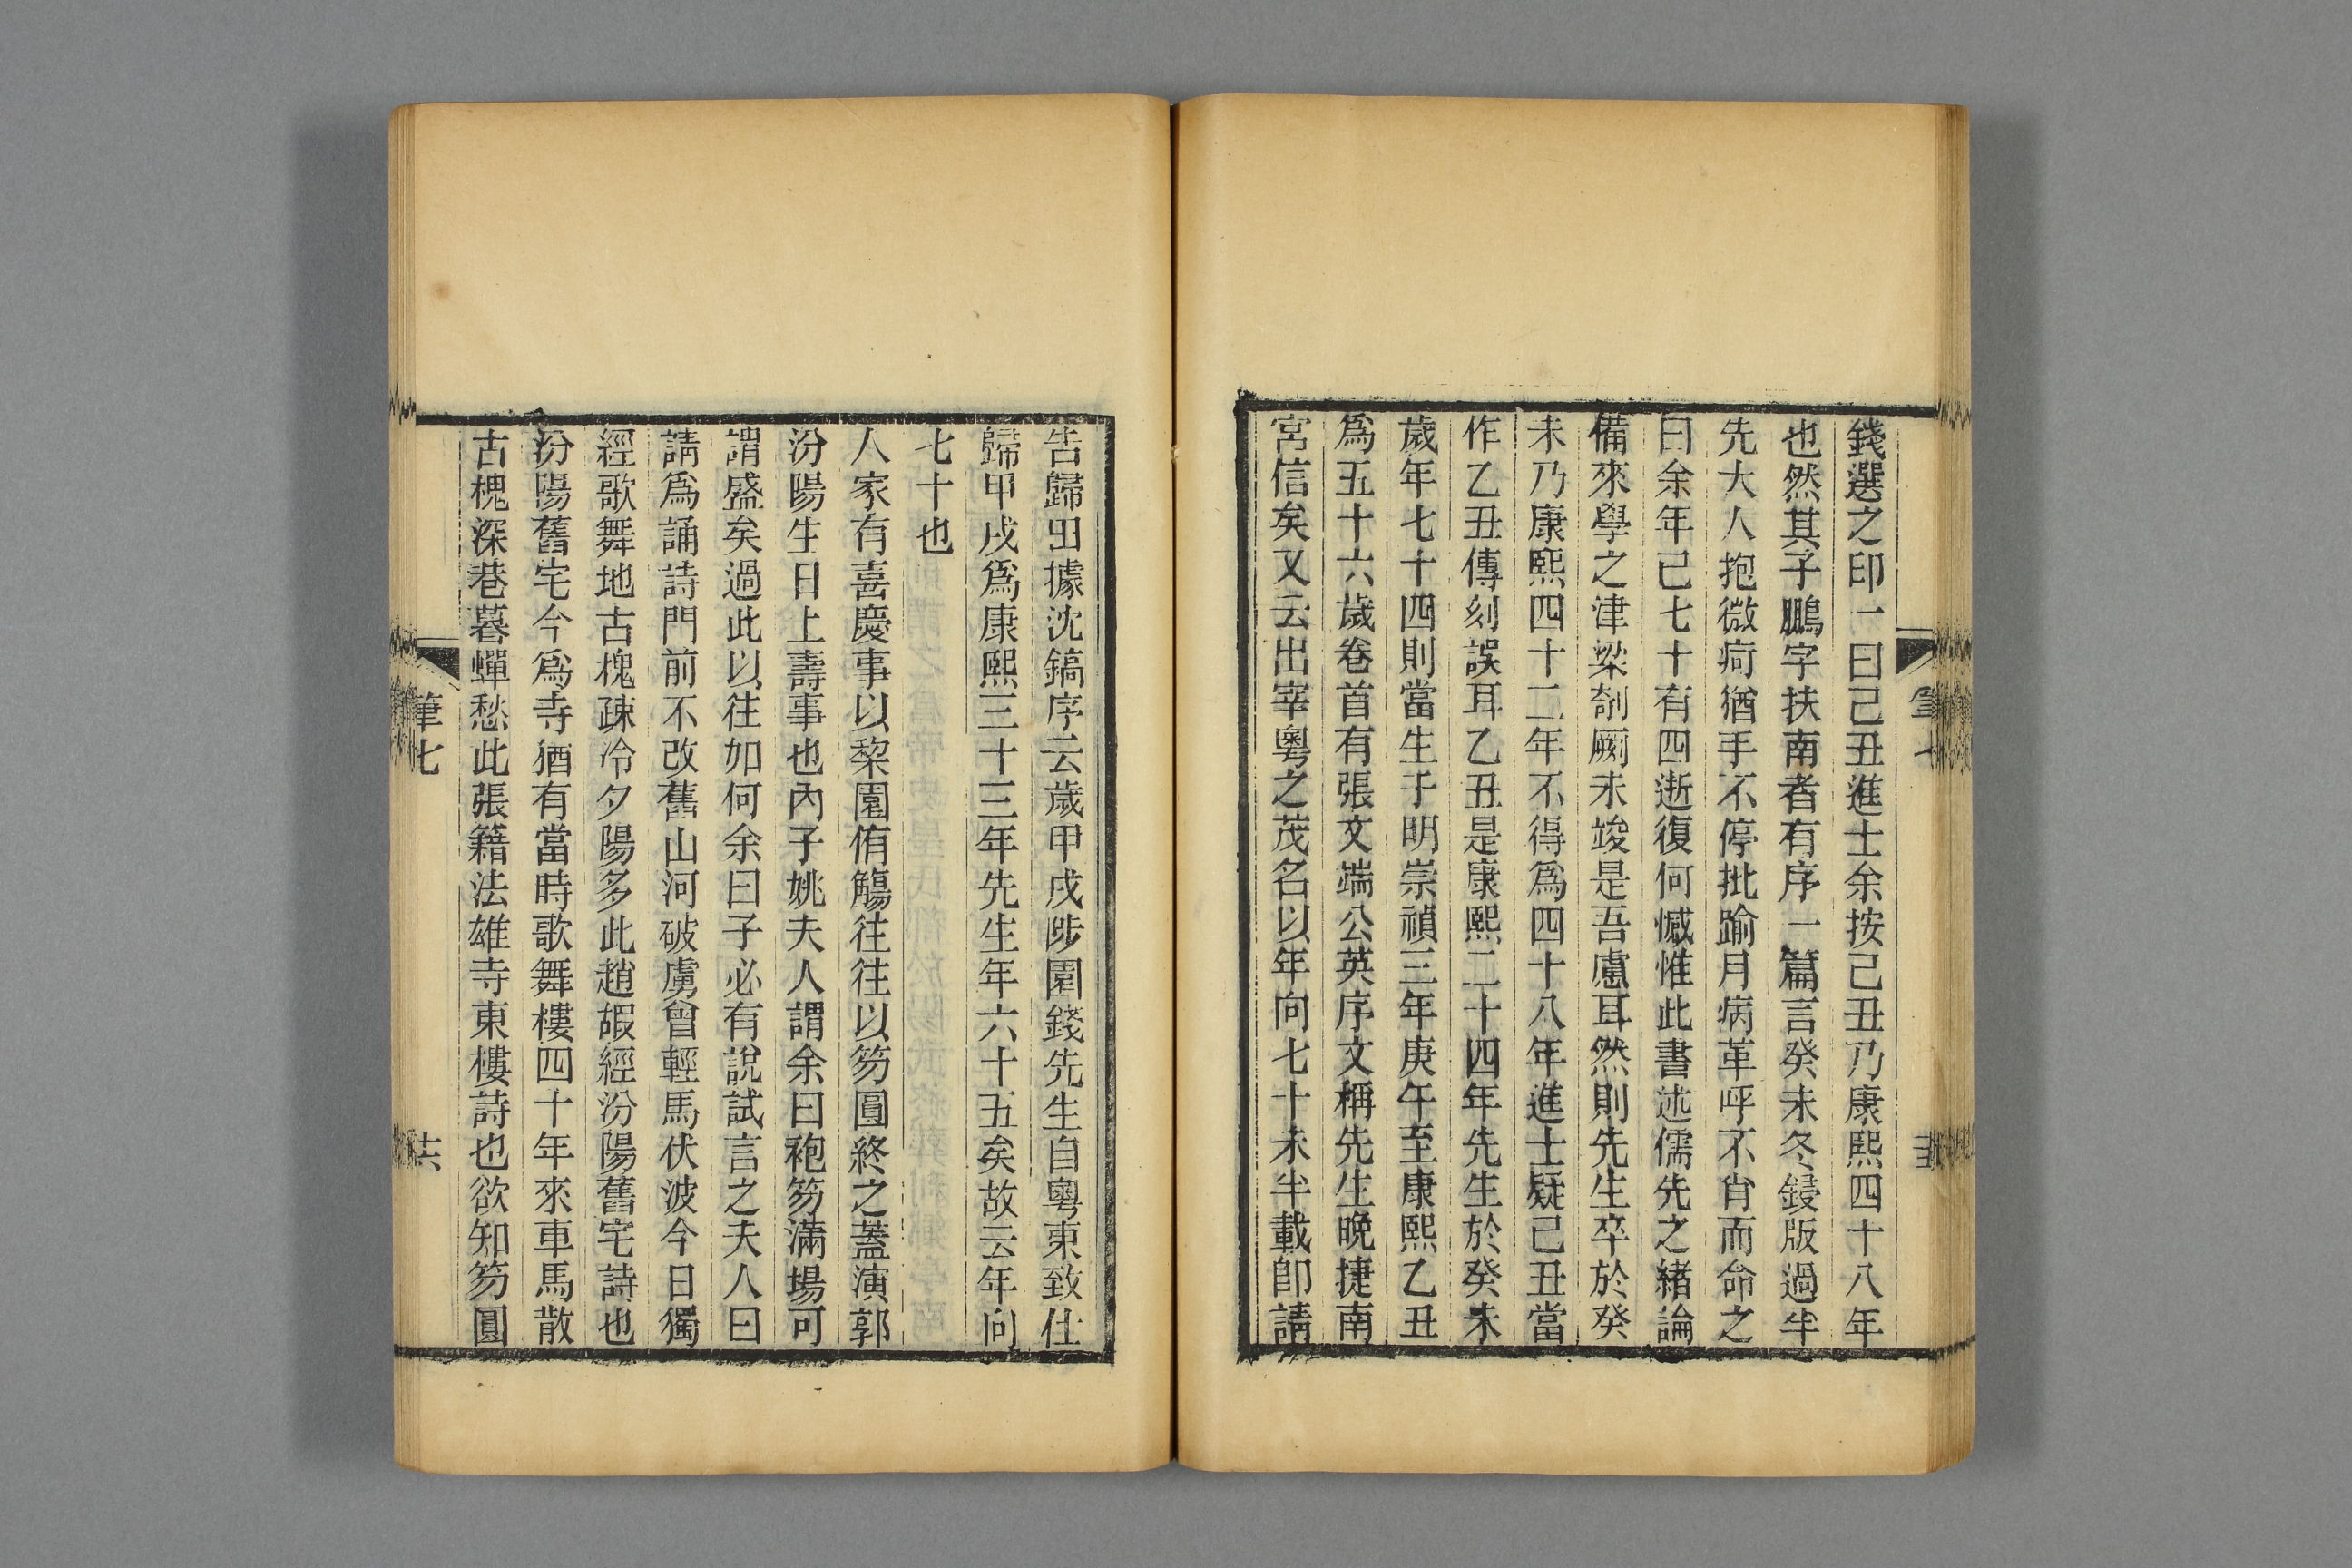 錢選之印一曰己丑進士余按己丑乃康熙四十八年
也然其子鵬字扶南者有序一篇言癸未冬鋟版過半
先大人抱微疴猶手不停批踰月病革呼不肖而命之
曰余年已七十有四逝復何憾惟此書述儒先之緒論
備來學之津梁剞劂未竣是吾慮耳然則先生卒於癸
未乃康熙四十二年不得爲四十八年進士疑己丑當
作乙丑傳刻誤耳乙丑是康熙二十四年先生於癸未
歲年七十四則當生于明崇禎三年庚午至康熙乙丑
爲五十六歲卷首有張文端公英序文稱先生晚捷南
宮信矣又云出宰粵之茂名以年向七十未半載即請
告歸田據沈鎬序云歲甲戌陟園錢先生自粵東致仕
歸甲戌爲康熙三十三年先生年六十五矣故云年向
七十也
人家有喜慶事以棃園侑觴往往以笏圓終之蓋演郭
汾陽生日上壽事也內子姚夫人謂余曰袍笏滿場可
謂盛矣過此以往如何余曰子必有說試言之夫人曰
請爲誦詩門前不改舊山河破虜曾輕馬伏波今日獨
經歌舞地古槐疎冷夕陽多此趙嘏經汾陽舊宅詩也
汾陽舊宅今爲寺猶有當時歌舞樓四十年來車馬散
古槐深巷暮蟬愁此張籍法雄寺東樓詩也欲知笏圓
筆七